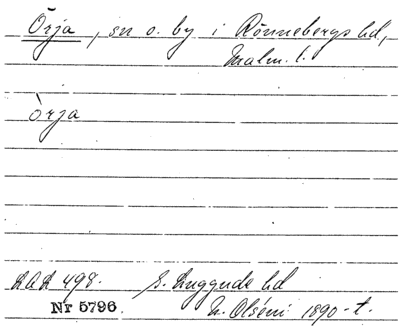 Örja, sn o. by i Rönnebergs hd,
Malm. l.
òrja
LAL 498. S. Luggude hd
Nr 5796. N. Olséni 1890-t.